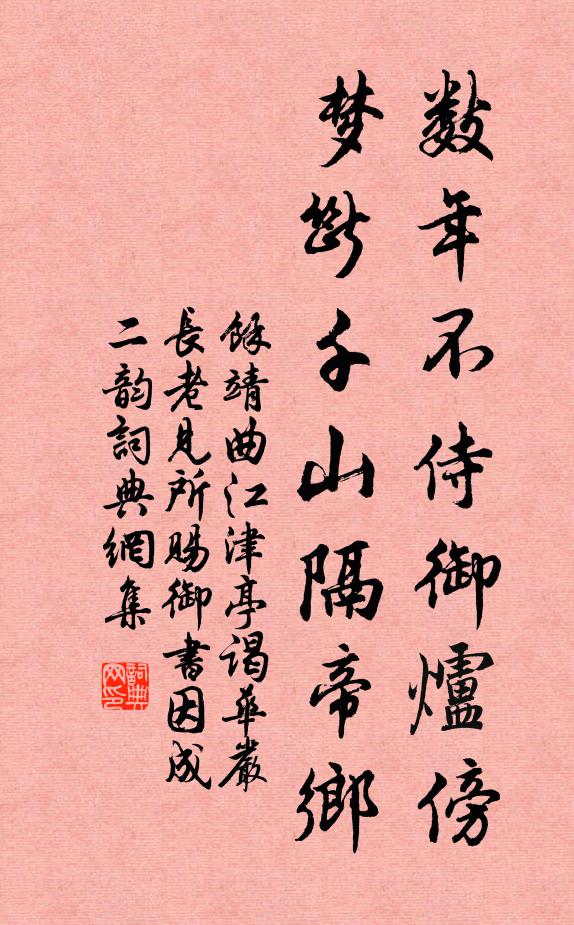 數年不侍御爐傍
梦斷千山隔帝鄉
餘靖曲江津亭謁華嚴
長老見所賜御書因成
二韵詞典網集
詞典
网印